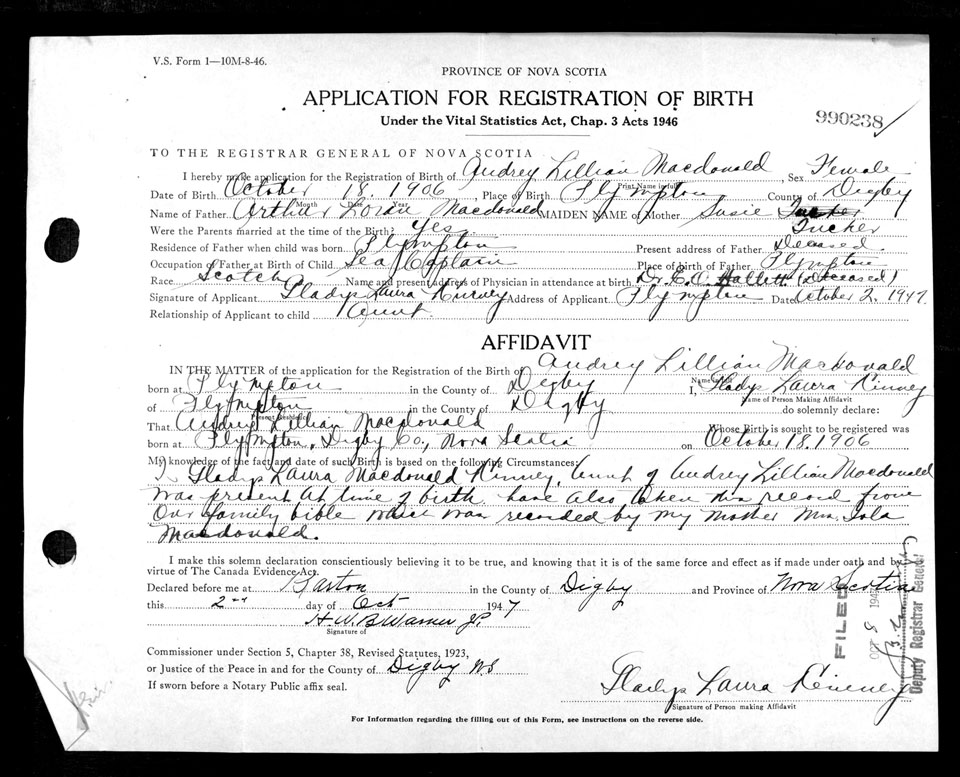 V.S. Form 1—10M-8-46.
PROVINCE OF NOVA SCOTIA
APPLICATION FOR REGISTRATION OF BIRTH
Under the Vital Statistics Act, Chap. 3 Acts 1946
990238
TO THE REGISTRAR GENERAL OF NOVA SCOTIA
I hereby make application for the Registration of Birth of Audrey Lillian Macdonald, Sex Female
Print Name in full
Date of Birth October 18, 1906, Place of Birth Plympton County of Digby
Month Date Year
Name of Father Arthur Loran Macdonald MAIDEN NAME of Mother Susie Tucker
Were the Parents married at the time of the Birth? Yes Tucker
Residence of Father when child was born Plympton Present address of Father Deceased.
Occupation of Father at Birth of Child Sea Captain Place of birth of Father Plympton
Race Scotch Name and present address of Physician in attendance at birth Dr. E. C. Hallett (Deceased)
Signature of Applicant Gladys Laura Kinney Address of Applicant Plympton Dated October 2, 1947.
Relationship of Applicant to child Aunt.
AFFIDAVIT
IN THE MATTER of the application for the Registration of the Birth of Audrey Lillian Macdonald
Name in full
born at Plympton in the County of Digby I, Gladys Laura Kinney
Name of Person Making Affidavit
of Plympton in the County of Digby do solemnly declare:
Present Residence
That Audrey Lillian Macdonald Whose Birth is sought to be registered was
born at Plympton, Digby Co., Nova Scotia on October 18, 1906
My knowledge of the fact and date of such Birth is based on the following Circumstances:
I Gladys Laura Macdonald Kinney, Aunt of Audrey Lillian Macdonald
was present at time of birth. have also taken this record from
Our family bible which was recorded by my mother Mrs. Iola
Macdonald.
I make this solemn declaration conscientiously believing it to be true, and knowing that it is of the same force and effect as if made under oath and by
virtue of The Canada Evidence Act.
Declared before me at Barton in the County of Digby and Province of Nova Scotia
this 2nd day of Oct 1947
H. W. B Warner J.P.
Signature of
Commissioner under Section 5, Chapter 38, Revised Statutes, 1923,
or Justice of the Peace in and for the County of Digby N.S
If sworn before a Notary Public affix seal.
FILED
OCT 8 194
Deputy Registrar General
Gladys Laura Kinney
Signature of Person making Affidavit
For Information regarding the filling out of this Form, see instructions on the reverse side.